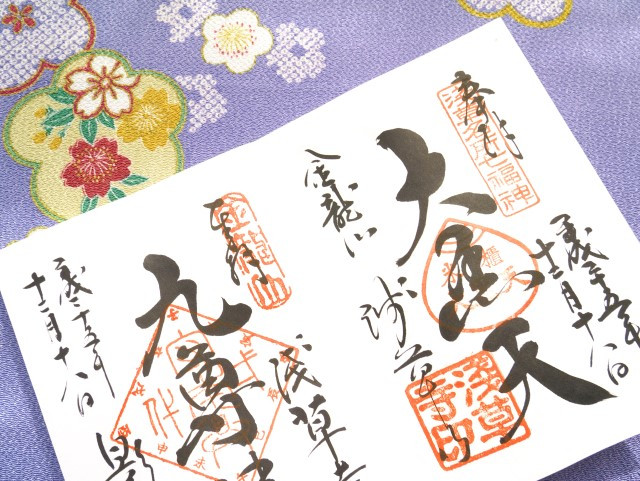 奉拝
浅草名所七福神
大黒天
平成二十五年
十二月十八日
金龍山
浅草寺
浅草寺印
奉拝
金龍山
九萬
浅草
平成二十五年
十二月十八日
影